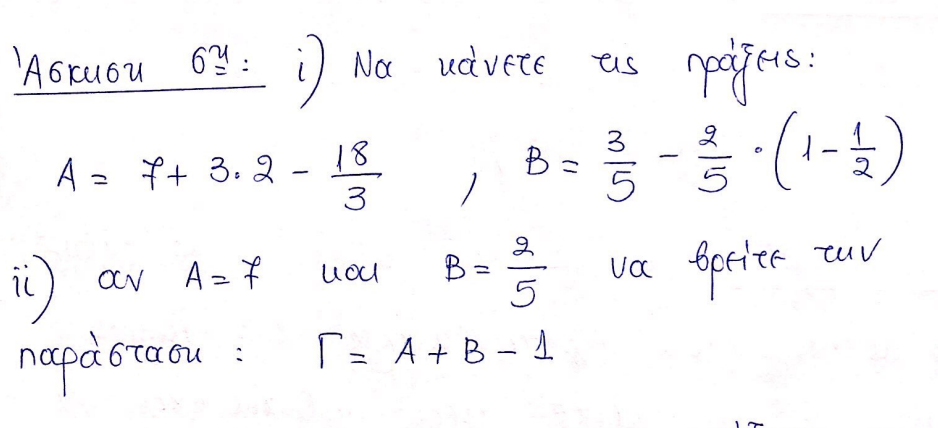 Άσκηση 6η: i) Να κάνετε τις πράξεις:
A = 7 + 3·2 - 18/3 , B = 3/5 - 2/5 · (1 - 1/2)
ii) αν A = 7 και B = 2/5 να βρείτε την
παράσταση : Γ = A + B - 1